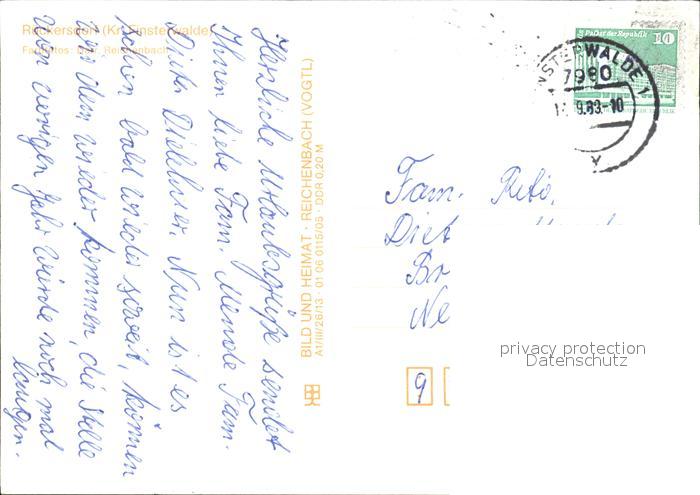 Rückersdorf (Kr. Finsterwalde)
Herzliche Urlaubsgrüße sendet
Ihnen liebe Fam. Mende Fam.
Dieter
Nun ist es
schon bald wieder soweit, können
wir dem wieder kommen, die Stelle
vom vorigen Jahr würde noch mal
langen.
BILD UND HEIMAT · REICHENBACH (VOGTL)
A1/III/26/13 · 01 06 0115/05 · DDR 0,20 M
Palast der Republik 10
FINSTERWALDE 1
7980
9.83.-10
Fam.
Diet
Br
Ne
9
privacy protection
Datenschutz